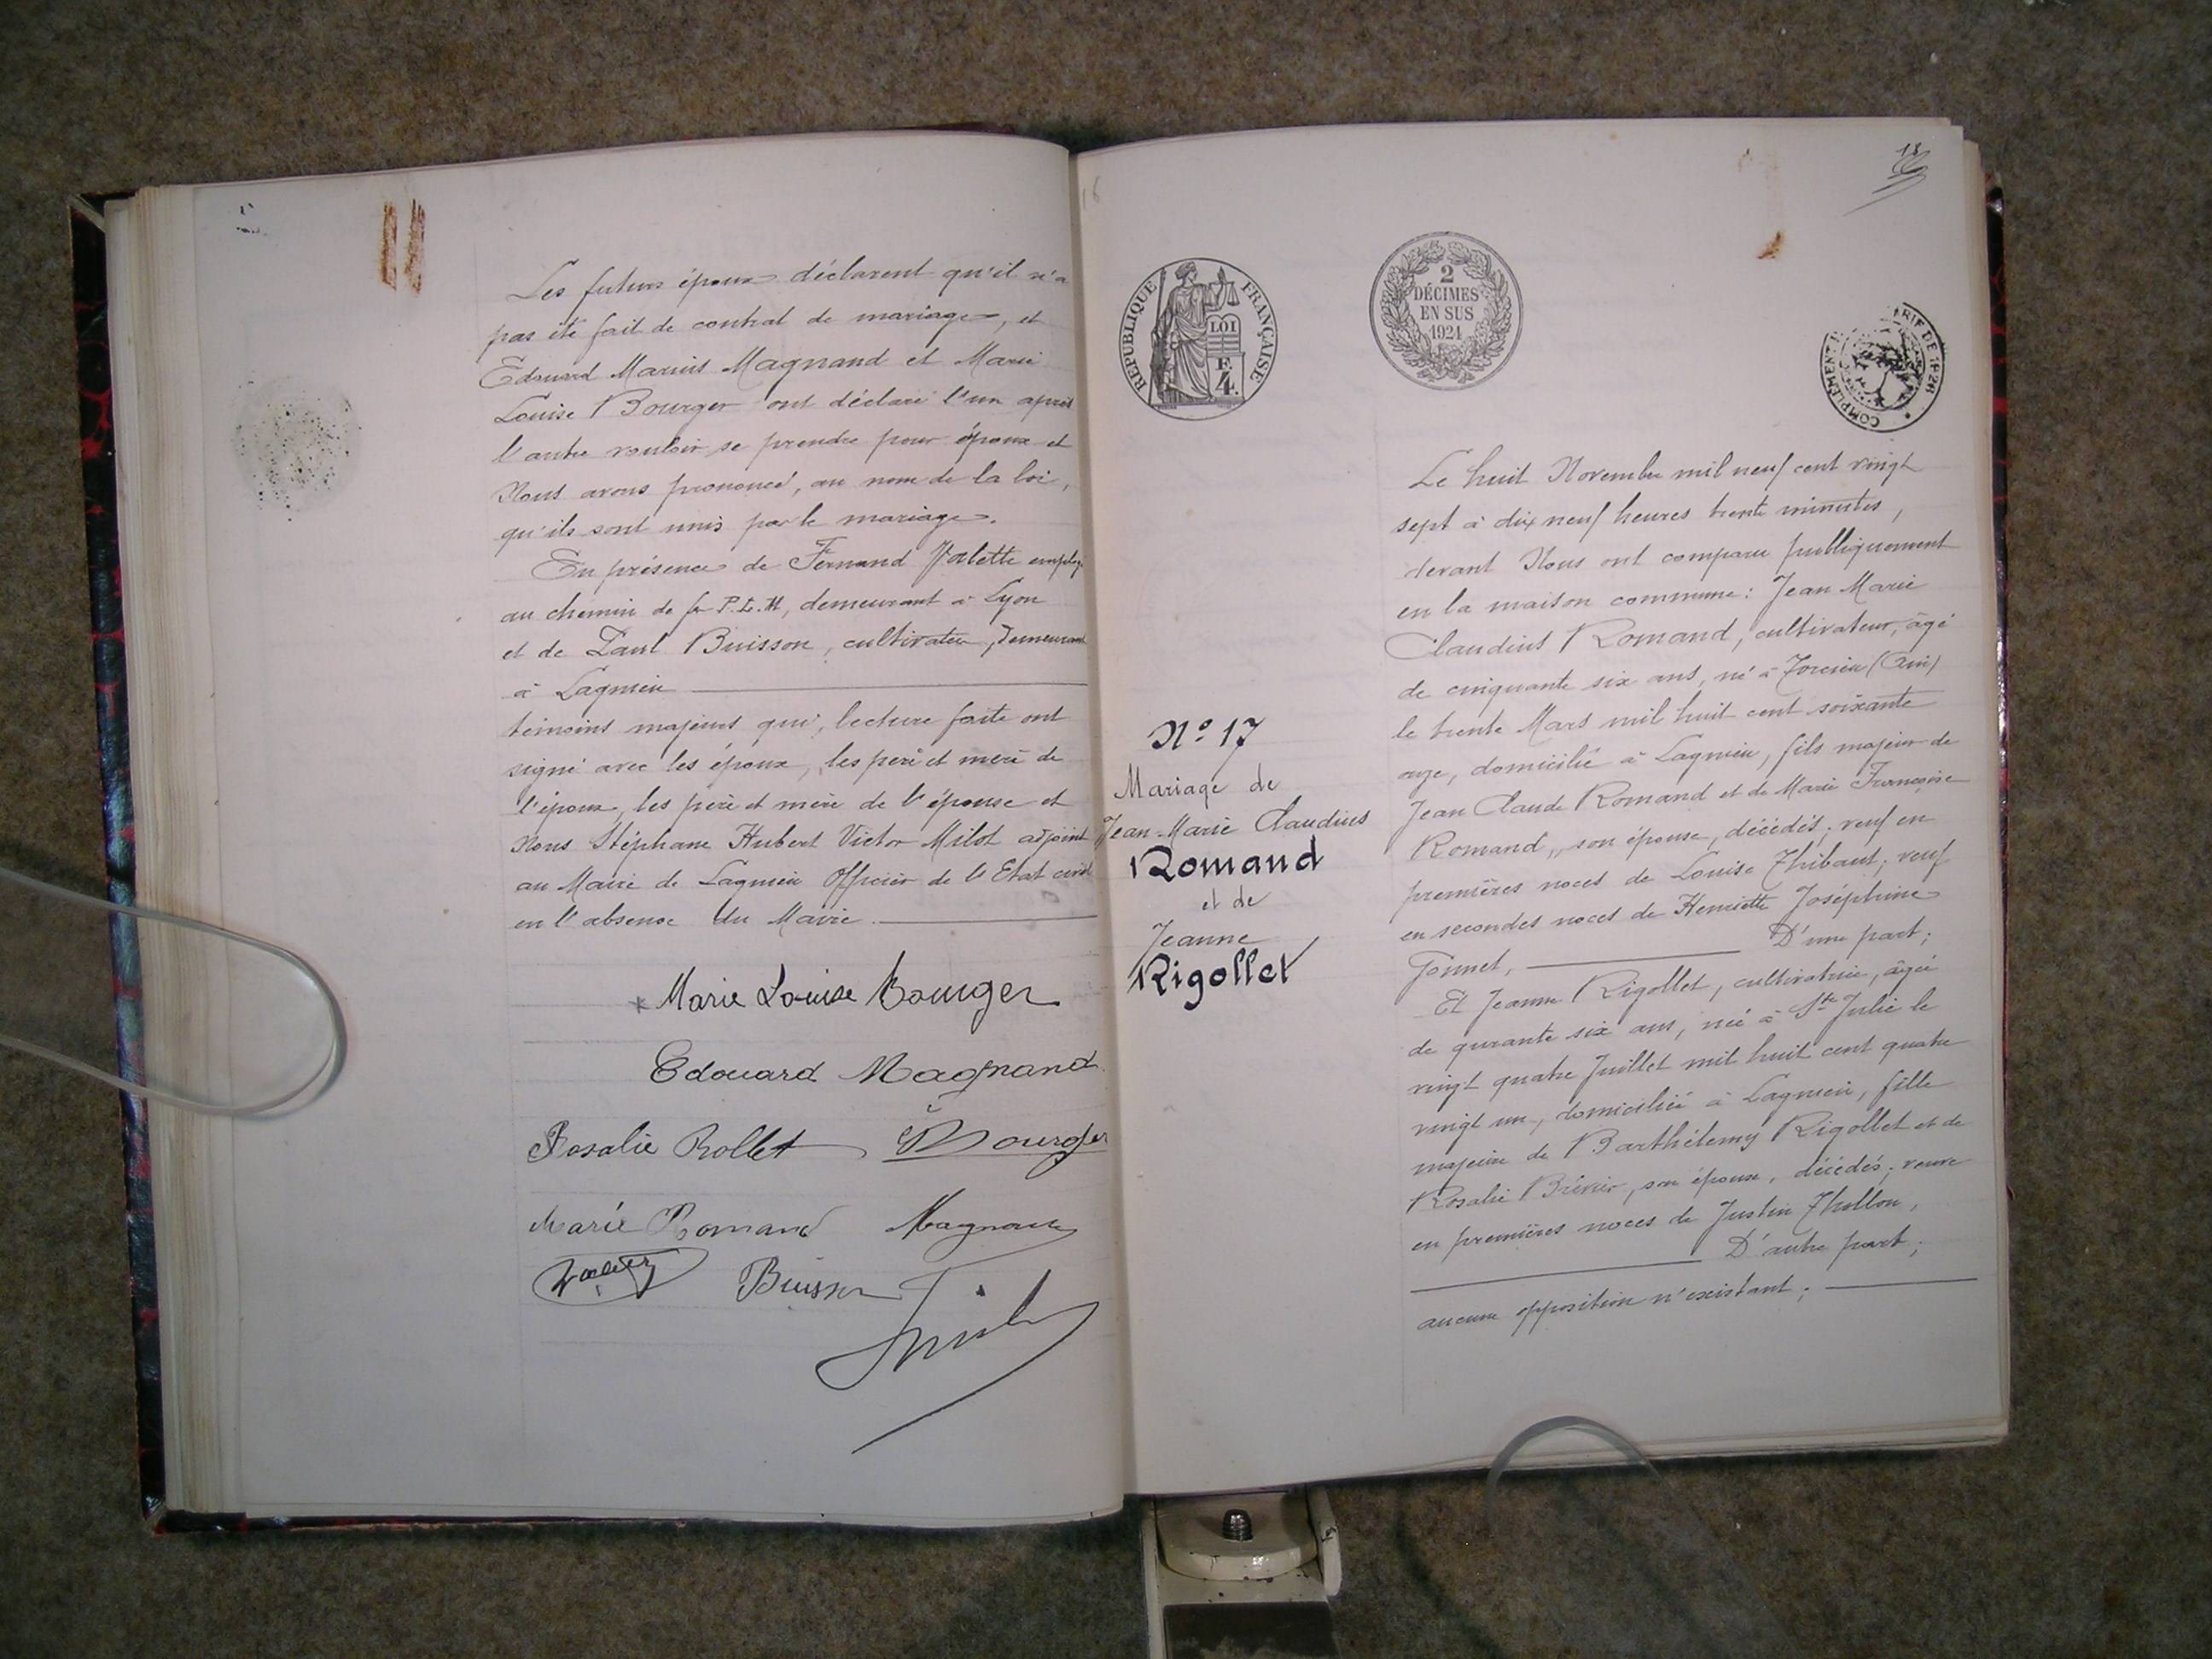 Les futurs époux déclarent qu'il n'a
pas été fait de contrat de mariage, et
Edouard Marius Magnand et Marie
Louise Bourger ont déclaré l'un après
l'autre vouloir se prendre pour époux et
Nous avons prononcé, au nom de la loi,
qu'ils sont unis par le mariage.
En présence de Fernand Valette employé
au chemin de fer P.L.M, demeurant à Lyon
et de Paul Buisson, cultivateur, demeurant
à Lagnieu
témoins majeurs qui, lecture faite ont
signé avec les époux, les père et mère de
l'époux, les père et mère de l'épouse et
Nous Stéphane Hubert Victor Milot adjoint
au Maire de Lagnieu Officier de l'Etat civil
en l'absence du Maire.
Marie Louise Bourger
Edouard Magnand
Rosalie Rollet Bourger
Marie Romand Magnand
Buisson
18
RÉPUBLIQUE FRANÇAISE
LOI
F.
4.
2
DÉCIMES
EN SUS
1921
COMPLÉMENT
N° 17
Mariage de
Jean-Marie Claudius
Romand
et de
Jeanne
Rigollet
Le huit Novembre mil neuf cent vingt
sept à dix neuf heures trente minutes,
devant Nous ont comparu publiquement
en la maison commune: Jean Marie
Claudius Romand, cultivateur, âgé
de cinquante six ans, né à Torcieu (Ain)
le trente Mars mil huit cent soixante
onze, domicilié à Lagnieu, fils majeur de
Jean Claude Romand et de Marie Françoise
Romand, son épouse, décédés; veuf en
premières noces de Louise Thibaut; veuf
en secondes noces de Henriette Joséphine
Tonnet, D'une part;
Et Jeanne Rigollet, cultivatrice, âgée
de qurante six ans, née à Ste Julie le
vingt quatre Juillet mil huit cent quatre
vingt un, domiciliée à Lagnieu, fille
majeure de Barthélemy Rigollet et de
Rosalie son épouse, décédés; veuve
en premières noces de Justin Thollon,
D'autre part;
aucune opposition n'existant;